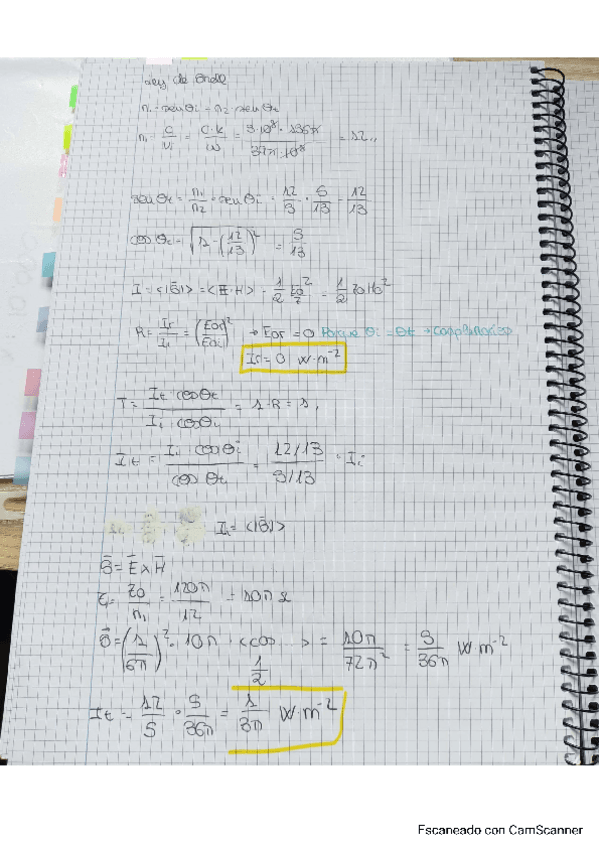 Ley de Snell
n₁·senθi = n₂·senθt
n₁ = c/v₁ = c·k/ω = 3·10⁸·136π/34π·10⁸ = 12,,
senθt = n₁/n₂·senθi = 12/ · 5/13 = 12/13
cosθt = √(1-(12/13)²) = 5/13
I = <|S̄|> = <E·H> = 1/2 E0²/Z = 1/2 Z0H0²
R = Ir/Ii = (E0r/E0i)² → E0r = 0 Porque θi =
Ir = 0 W·m⁻²
T = It·cosθt/Ii·cosθi = 1-R = 1,
It = Ii·cosθi/cosθt = 12/13 / 5/13 · Ii
Ii = <|S̄|>
S̄ = Ē x H̄
Z₁ = Z0/n₁ = 120π/12 = 10π Ω
S̄ = (1/6π)²·10π·<cos...> = 10π/72π² = 5/36π W·m⁻²
1/2
It = 12/5 · 5/36π = 1/3π W·m⁻²
Escaneado con CamScanner